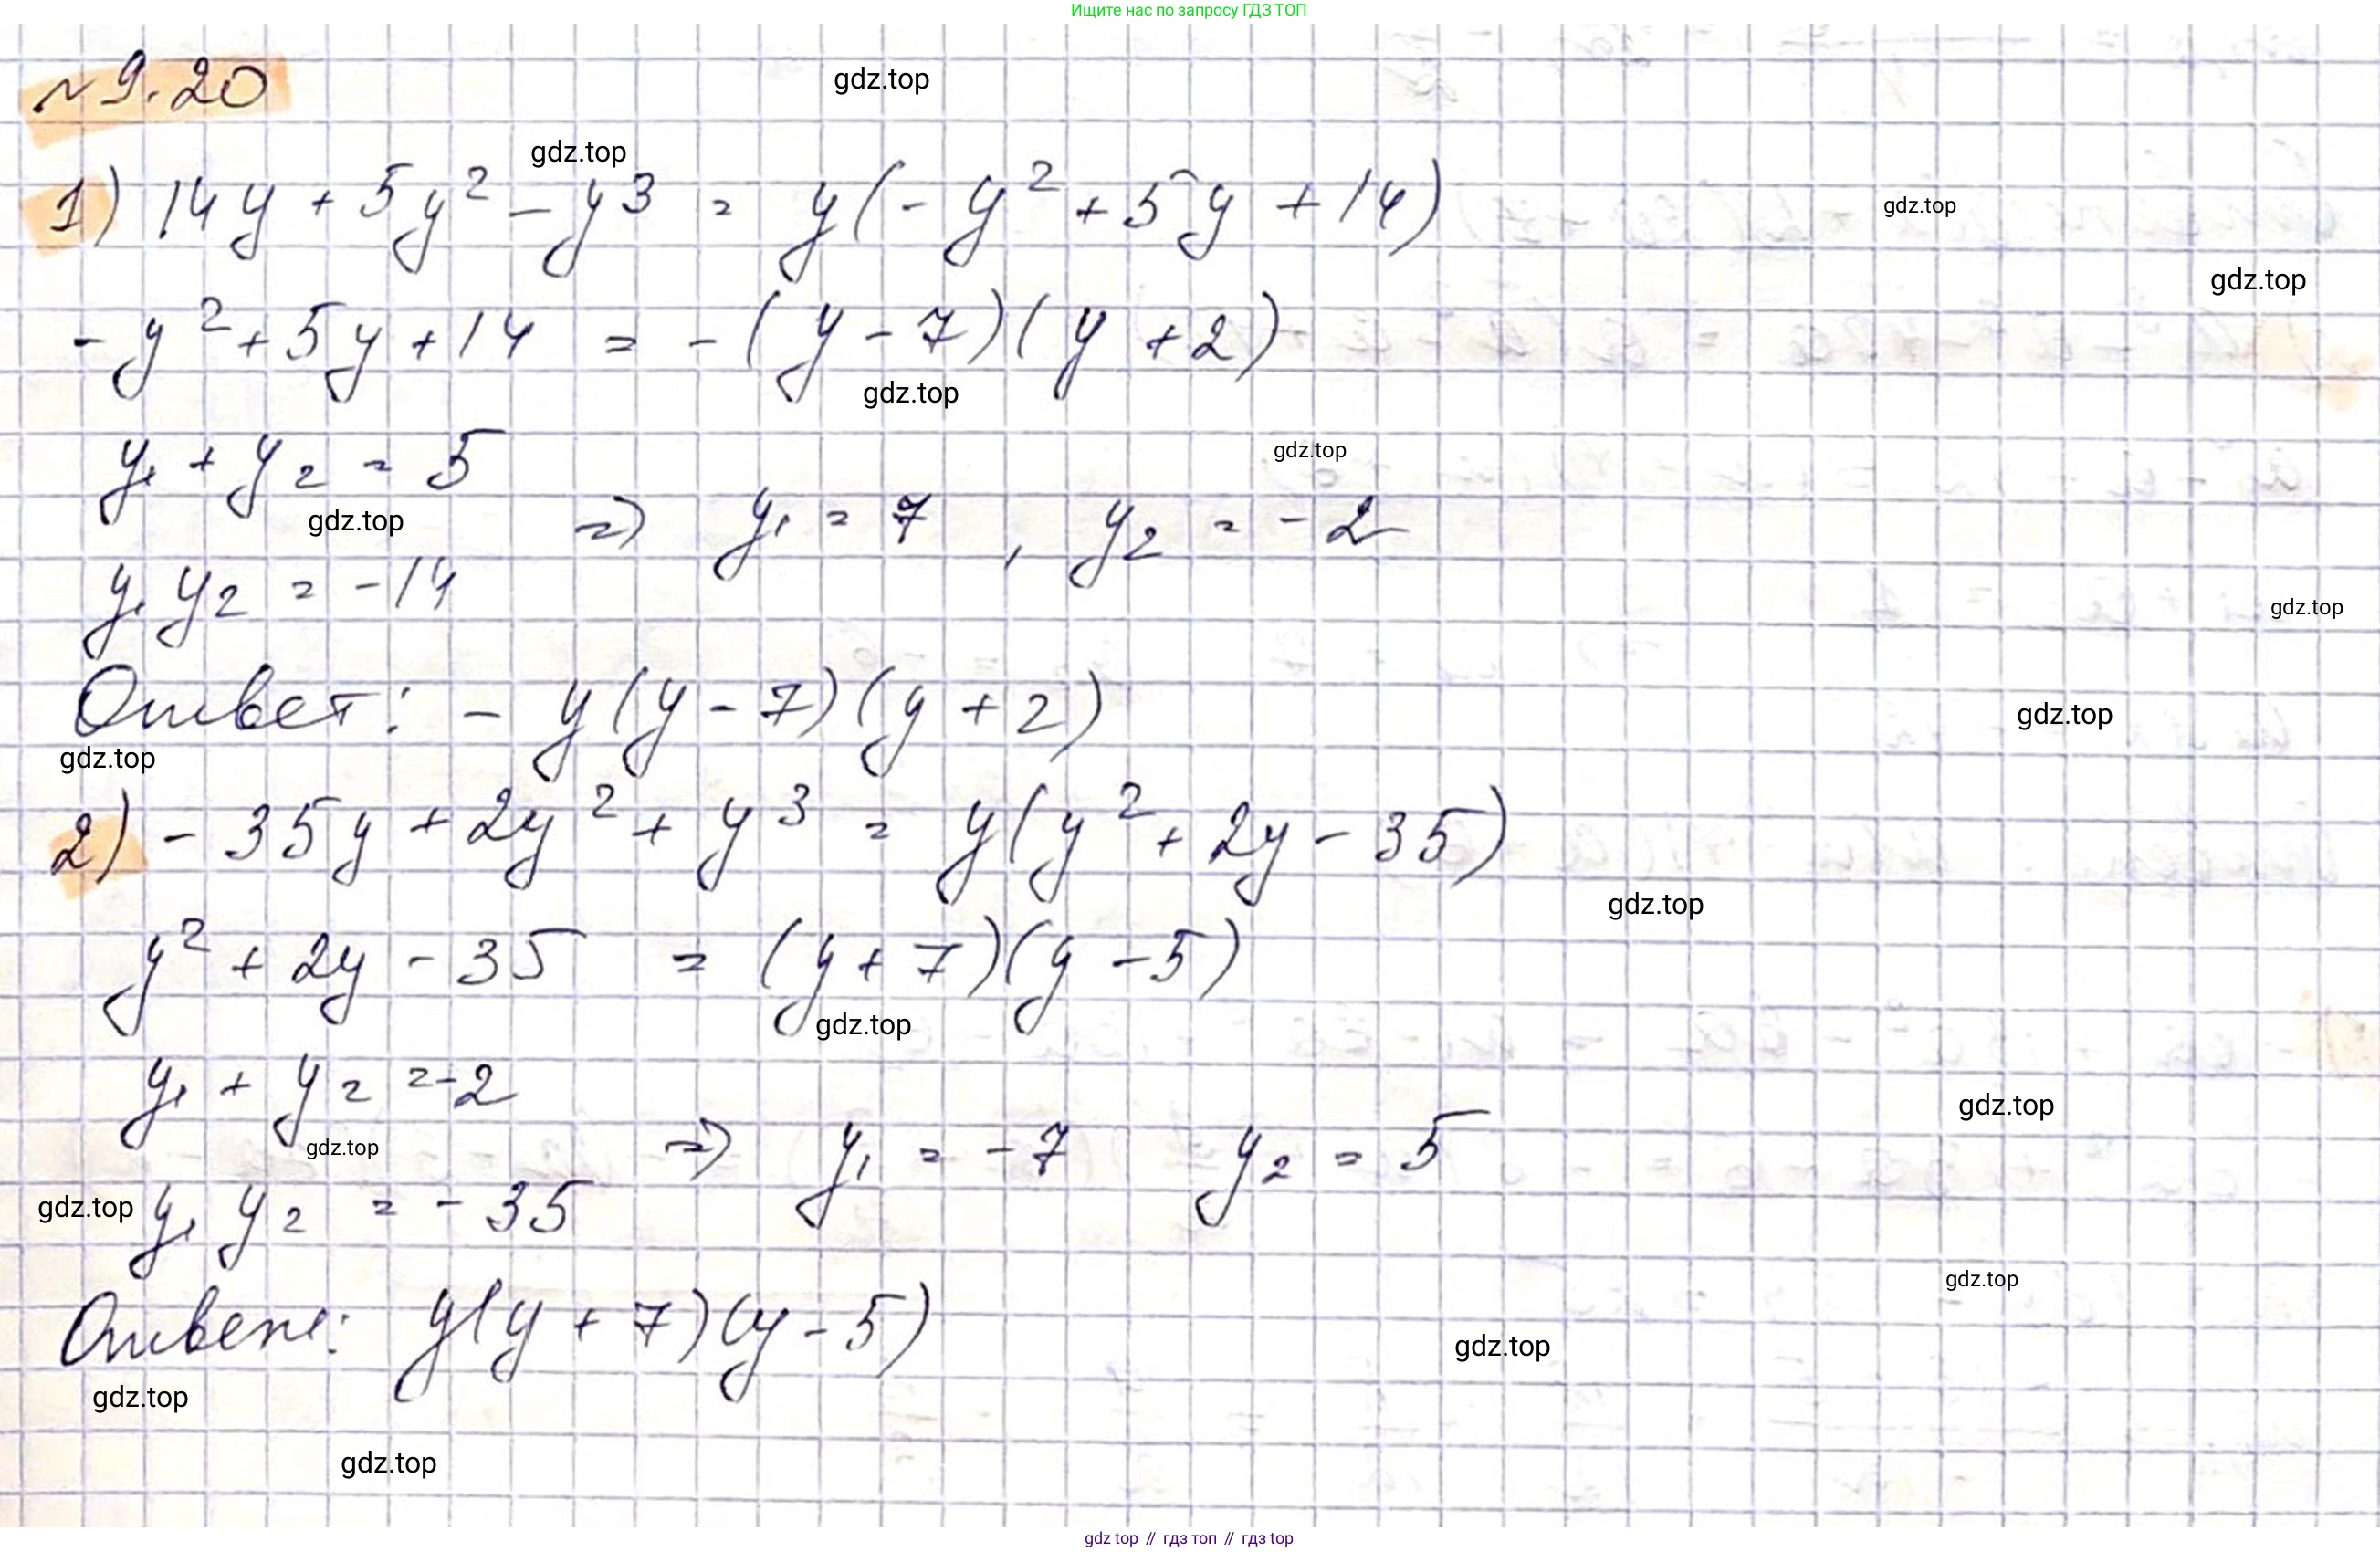 Ищите нас по запросу ГДЗ ТОП
№ 9.20
gdz.top
gdz.top
1) 14y + 5y² - y³ = y(-y² + 5y + 14)
gdz.top
gdz.top
-y² + 5y + 14 = -(y - 7)(y + 2)
gdz.top
y₁ + y₂ = 5
gdz.top
gdz.top
=> y₁ = 7, y₂ = -2
y₁ y₂ = -14
gdz.top
Ответ: - y(y - 7)(y + 2)
gdz.top
gdz.top
2) - 35y + 2y² + y³ = y(y² + 2y - 35)
gdz.top
y² + 2y - 35 = (y + 7)(y - 5)
gdz.top
y₁ + y₂ = -2
gdz.top
gdz.top
=> y₁ = -7 y₂ = 5
gdz.top
y₁ y₂ = - 35
gdz.top
Ответ: y(y + 7)(y - 5)
gdz.top
gdz.top
gdz.top
gdz top // гдз топ // гдз top